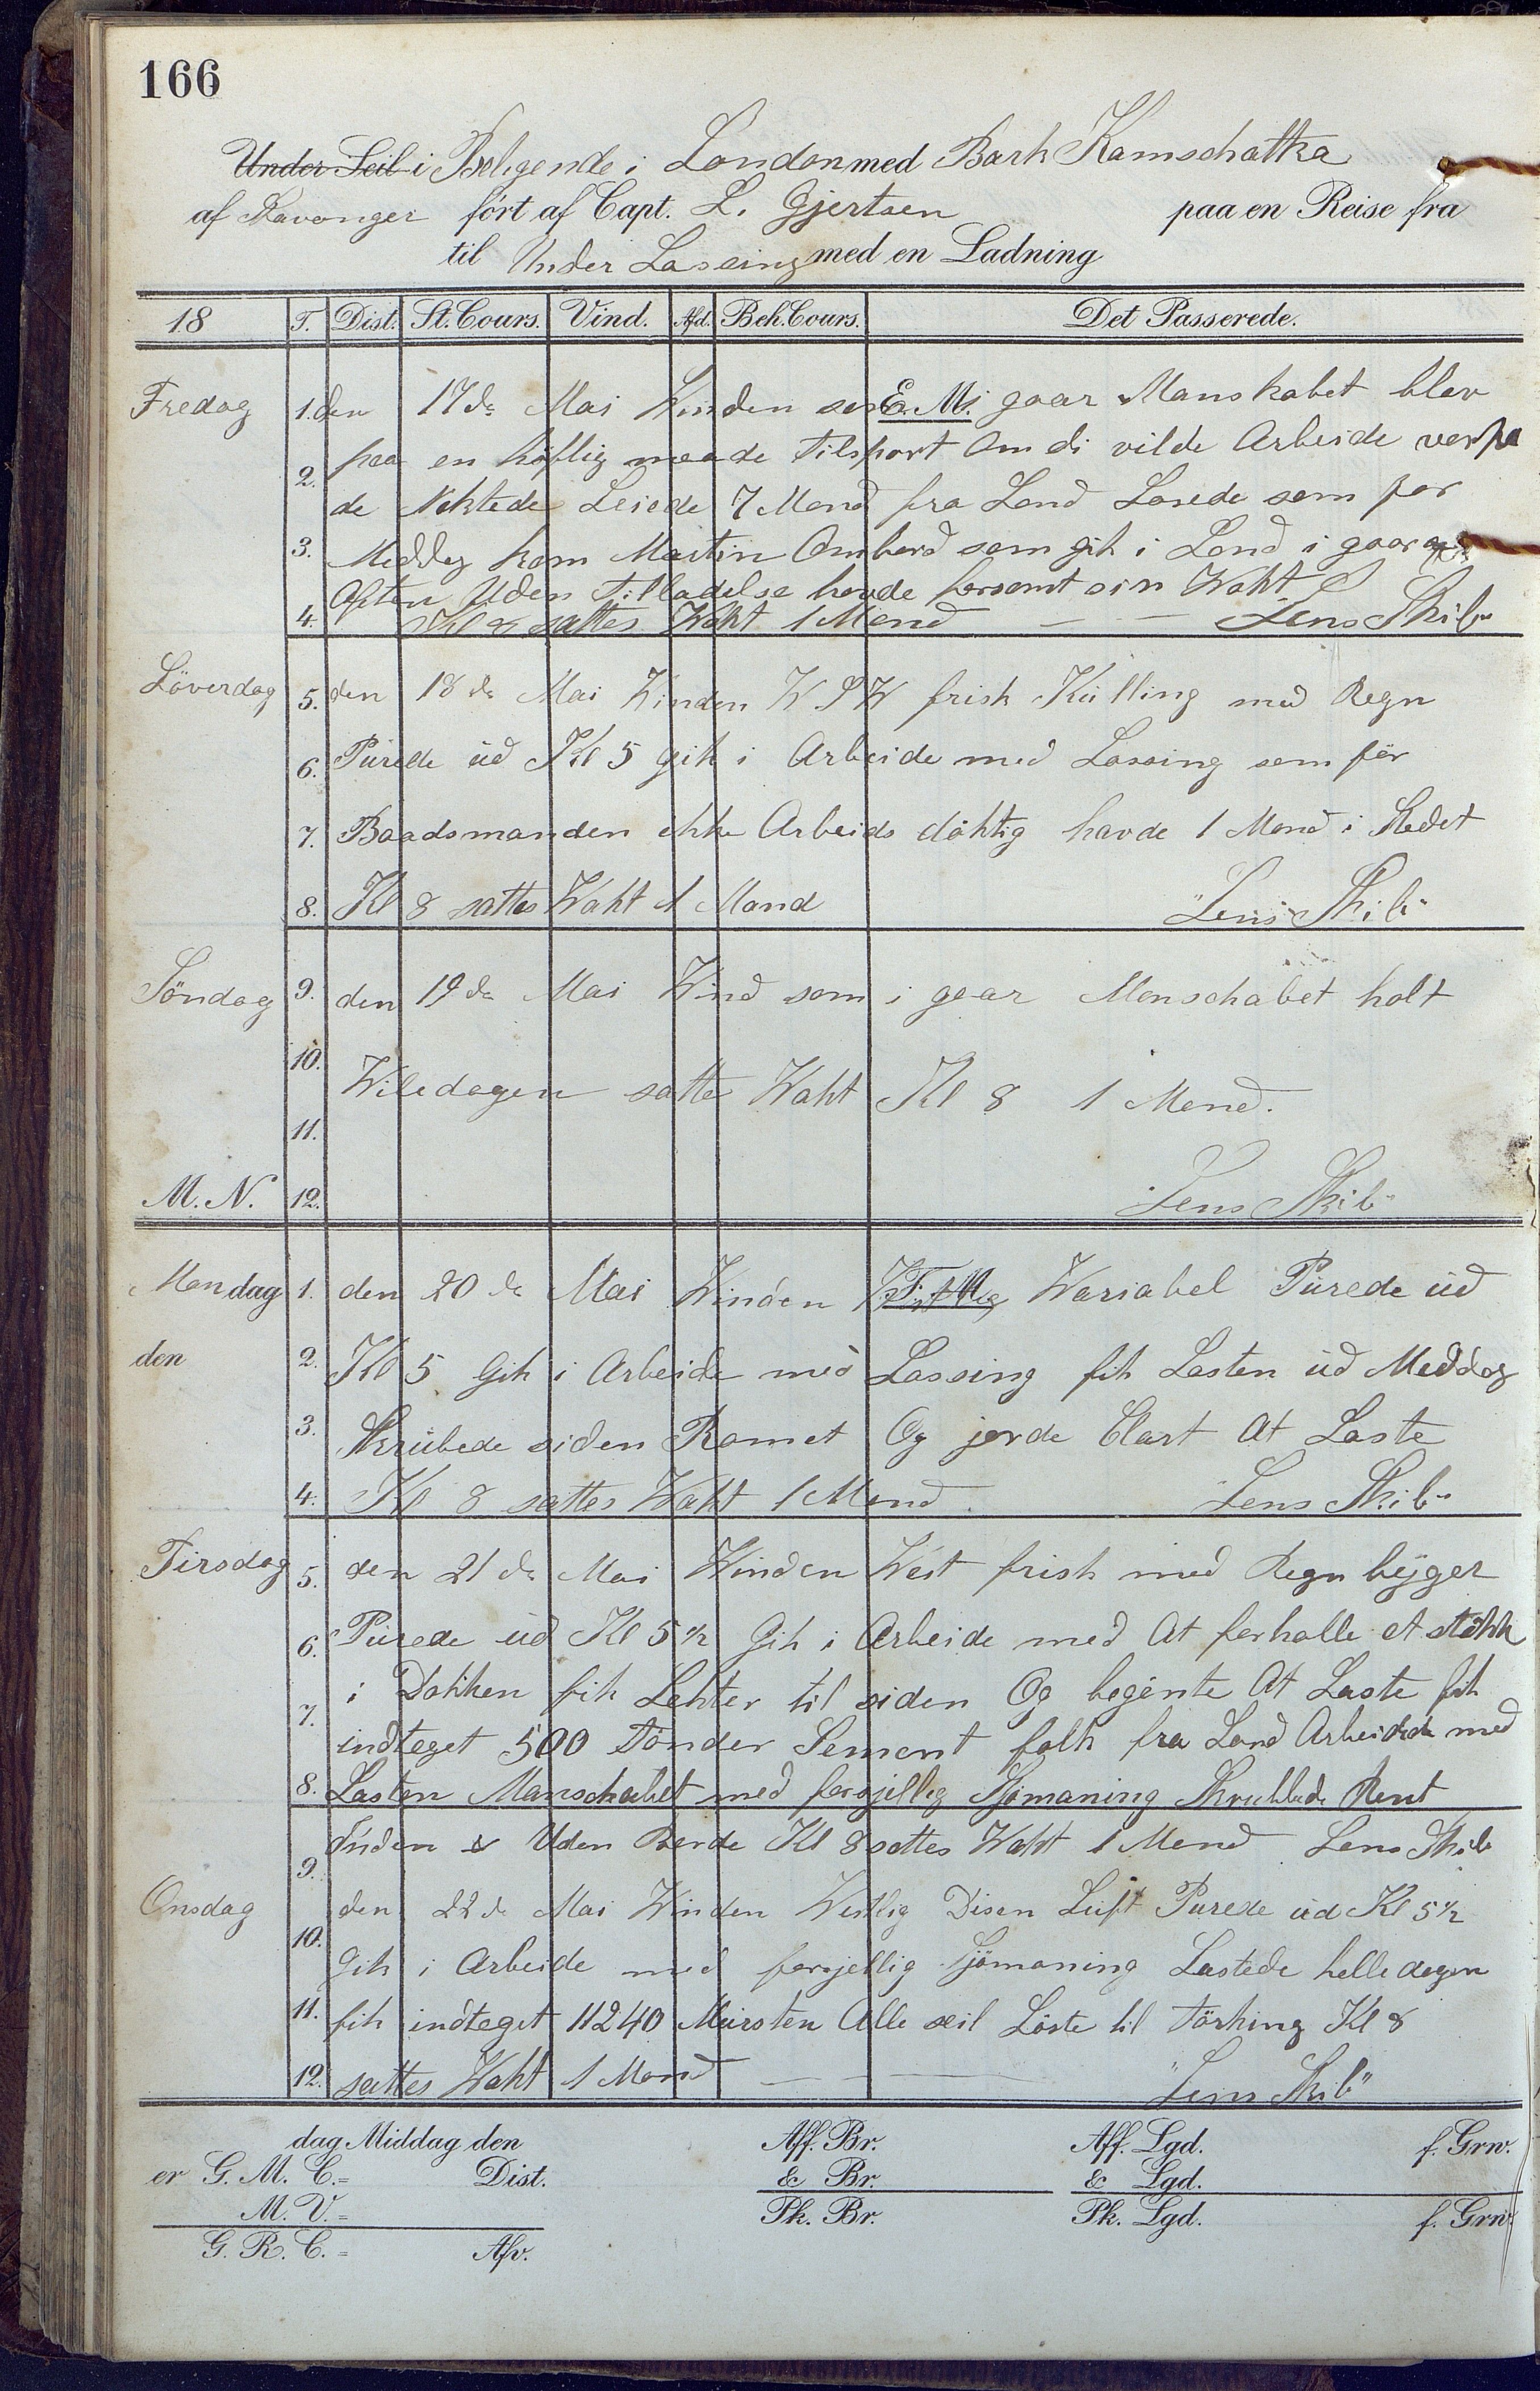 166
Under Seil i Beligende i London med Bark Kamschatka
af Stavanger ført af Capt. L. Gjertsen paa en Reise fra
til Under Lassing med en Ladning
18 T. Dist. St. Cours. Vind. Afd. Beh. Cours. Det Passerede.
Fredag 1. den 17de Mai Winden som E. M. i gaar Manskabet blev
2. paa en höflig maade tilsport Om di vilde Arbeide verpa
de Nektede Leiede 7 Mand fra Land Losede som for
3. Meddag kom Martin Ombord som gik i Land i gaar
Aften Uden Tilladelse havde forsomt sin Waht
4. Kl 8 sattes Waht 1 Mand — — Lens Skib"
Löverdag 5. den 18de Mai Winden W S W frisk Külling med Regn
6. Pürede üd Kl 5 gik i Arbeide med Lossing som för
7. Baadsmanden ikke Arbeids döktig havde 1 Mand i Stedet
8. Kl 8 sattes Waht 1 Mand "Lens Skib"
Söndag 9. den 19de Mai Wind som i gaar Manschabet holt
10. Wiledagen satte Waht Kl 8 1 Mand.
11.
M. N. 12. Lens Skib"
Mandag 1. den 20de Mai Winden F. M. Wariabel Pürede üd
den 2. Kl 5 Gik i Arbeide med Lossing fik Lasten üd Meddag
3. Skrübede siden Romet Og jorde Clart At Laste
4. Kl 8 sattes Waht 1 Mand. Lens Skib"
Tirsdag 5. den 21de Mai Winden West frisk med Regn byger
6. Pürede üd Kl 5 1/2 Gik i Arbeide med At forhalle et stökk
7. i Dokken fik Lekter til siden Og begönte At Laste fik
indtaget 500 Tönder Sement folk fra Land Arbeidede med
8. Lasten Manschabet med forsjellig Sjömaning Skrubbede Rent
9. Inden & Uden Borde Kl 8 sattes Waht 1 Mand Lens Skib
Onsdag den 22de Mai Winden Westlig Disen Luft Purede üd Kl 5 1/2
10. Gik i Arbeide med forsjellig Sjömaning Lastede helle dagen
11. fik indtaget 11240 Mürsten Alle seil Löste til törking Kl 8
12. sattes Waht 1 Mand — — — "Lens Skib"
dag Middag den Aff. Br. Aff. Lgd. f. Grw.
er G. M. C.= Dist. & Br. & Lgd.
M. V.= Pk. Br. Pk. Lgd. f. Grw.
G. R. C.= Afv.